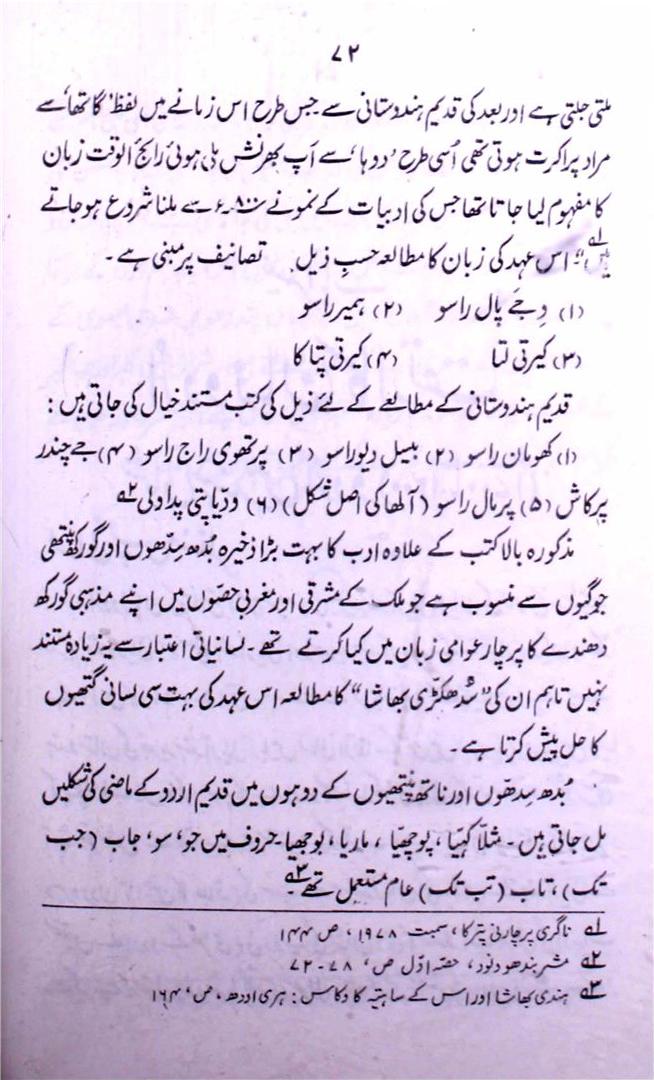 ۷۲
ملتی جلتی ہے اور بعد کی قدیم ہندوستانی سے جس طرح اس زمانے میں لفظ ’گاتھا‘ سے
مراد پراکرت ہوتی تھی اُسی طرح ’دوہا‘ سے اَپ بھرنش ملی ہوئی رائج الوقت زبان
کا مفہوم لیا جاتا تھا جس کی ادبیات کے نمونے ۸۰۰ء سے ملنا شروع ہوجاتے
ہیں‘‘ ۱ اس عہد کی زبان کا مطالعہ حسبِ ذیل تصانیف پر مبنی ہے۔
(۱) وِجَے پال راسو (۲) ہمیر راسو
(۳) کیرتی لتا (۴) کیرتی پتا کا
قدیم ہندوستانی کے مطالعے کے لئے ذیل کی کتب مستند خیال کی جاتی ہیں:
(۱) کھومان راسو (۲) بیسل دیو راسو (۳) پرتھوی راج راسو (۴) جے چندر
پرکاش (۵) پرمال راسو (آلھا کی اصل شکل) (۶) ودیاپتی پداولی ۲
مذکورہ بالا کتب کے علاوہ ادب کا بہت بڑا ذخیرہ بدھ سِدھوں اور گورکھ پنتھی
جوگیوں سے منسوب ہے جو ملک کے مشرقی اور مغربی حصّوں میں اپنے مذہبی گورکھ
دھندے کا پرچار عوامی زبان میں کیا کرتے تھے۔ لسانیاتی اعتبار سے یہ زیادہ مستند
نہیں تاہم ان کی ’’سُدھکڑی بھاشا‘‘ کا مطالعہ اس عہد کی بہت سی لسانی گتھیوں
کا حل پیش کرتا ہے۔
بُدھ سِدھوں اور ناتھ پنتھیوں کے دوہوں میں قدیم اردو کے ماضی کی شکلیں
مل جاتی ہیں۔ مثلاً کہیا، پوچھیا، ماریا، بوجھیا۔ حروف میں جو، سو، جاب (جب
تک)، تاب (تب تک) عام مستعمل تھے۔ ۳
۱ ناگری پرچارنی پترکا، سمبت ۱۹۷۸، ص ۱۴۴
۲ مشر بندھو ونود، حصّہ اوّل ص، ۷۸۔۷۲
۳ ہندی بھاشا اور اس کے ساہتیہ کا وکاس: ہری اودھ، ص، ۱۶۴